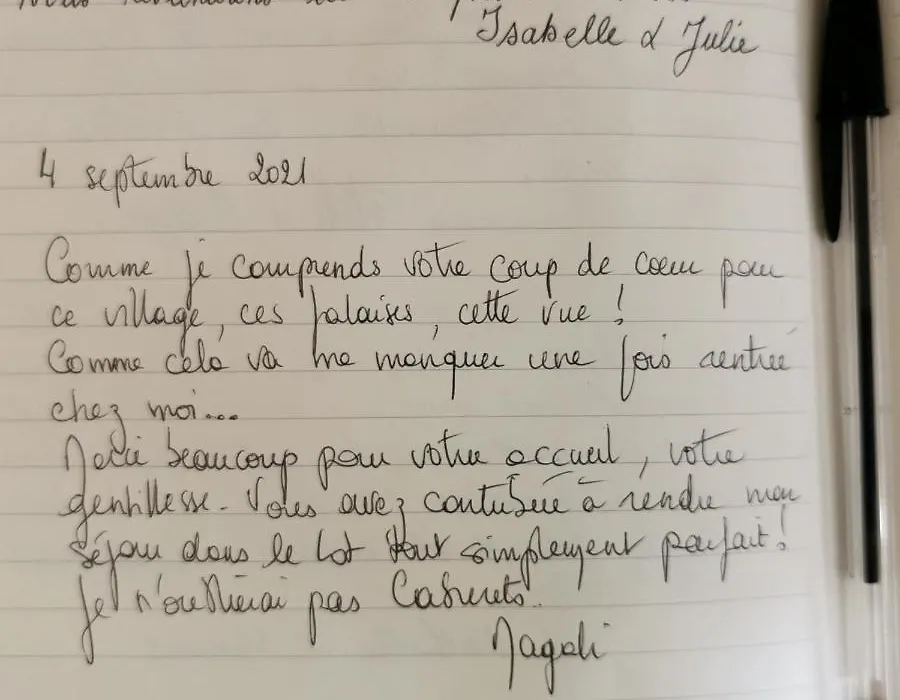 Isabelle & Julie
4 septembre 2021
Comme je comprends votre coup de cœur pour
ce village, ces falaises, cette vue !
Comme cela va me manquer une fois rentrée
chez moi...
Merci beaucoup pour votre accueil, votre
gentillesse. Vous avez contribué à rendre mon
séjour dans le Lot tout simplement parfait !
Je n'oublierai pas Cabrerets.
Magali